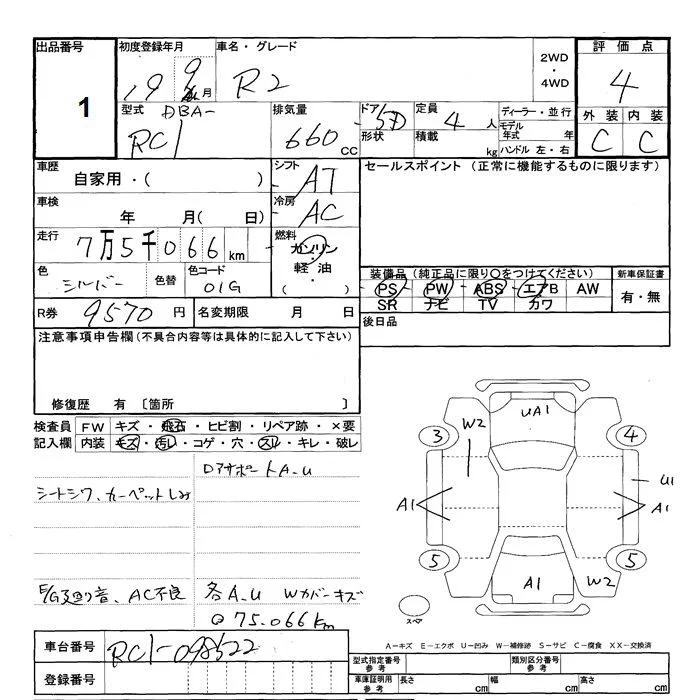 出品番号 1
初度登録年月 19 9 月
車名・グレード R2
2WD・4WD
評価点 4
外装 内装
C C
型式 DBA-
RC1
排気量 660 CC
ドア形状 5D
定員 4 人
積載 kg
ディーラー・並行
モデル年式 年
ハンドル 左・右
車歴 自家用・( )
シフト AT
セールスポイント (正常に機能するものに限ります)
車検 年 月( 日)
冷房 AC
走行 7万5千066km
燃料 ガソリン・軽油・( )
色 シルバー 色替 色コード 01G
装備品 (純正品に限り○をつけてください)
新車保証書
PS PW ABS エアB AW
有・無
SR ナビ TV カワ
R券 9570 円 名変期限 月 日
後日品
注意事項申告欄(不具合内容等は具体的に記入して下さい)
修復歴 有 〔箇所 〕
検査員記入欄 FW キズ・飛石・ヒビ割・リペア跡・×要
内装 キズ・汚れ・コゲ・穴・スレ・キレ・破レ
DアサポートA-U
シートシワ、カーペットしみ
E/G廻り音、AC不良
各A-U Wカバーキズ
@75.066km
UA1
W2
3 4
A1 U1
A1
5 5
A1 W2
スペア
A−キズ E−エクボ U−凹み W−補修跡 S−サビ C−腐食 XX−交換済
車台番号 RC1-098522
登録番号
型式指定番号 参考 類別区分番号 参考
車庫証明用 参考 長さ cm 幅 cm 高さ cm